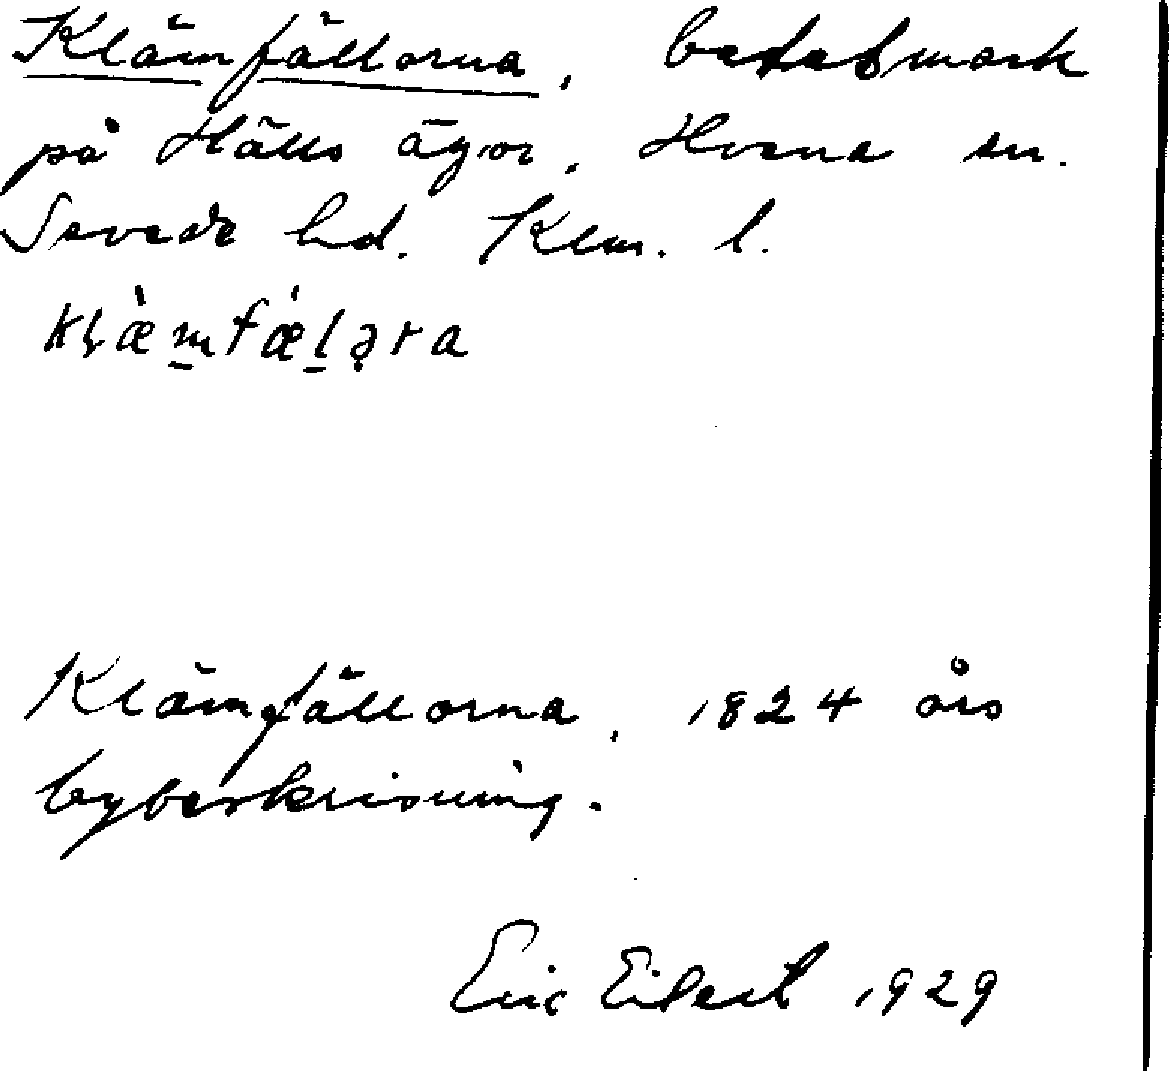 Klämfällorna, betesmark
på Hälls ägor, Hvena sn.
Sevede hd. Klm. l.
klæ̀mfǽləra
Klämfällorna, 1824 års
bybeskrivning.
Eric Eilert 1929